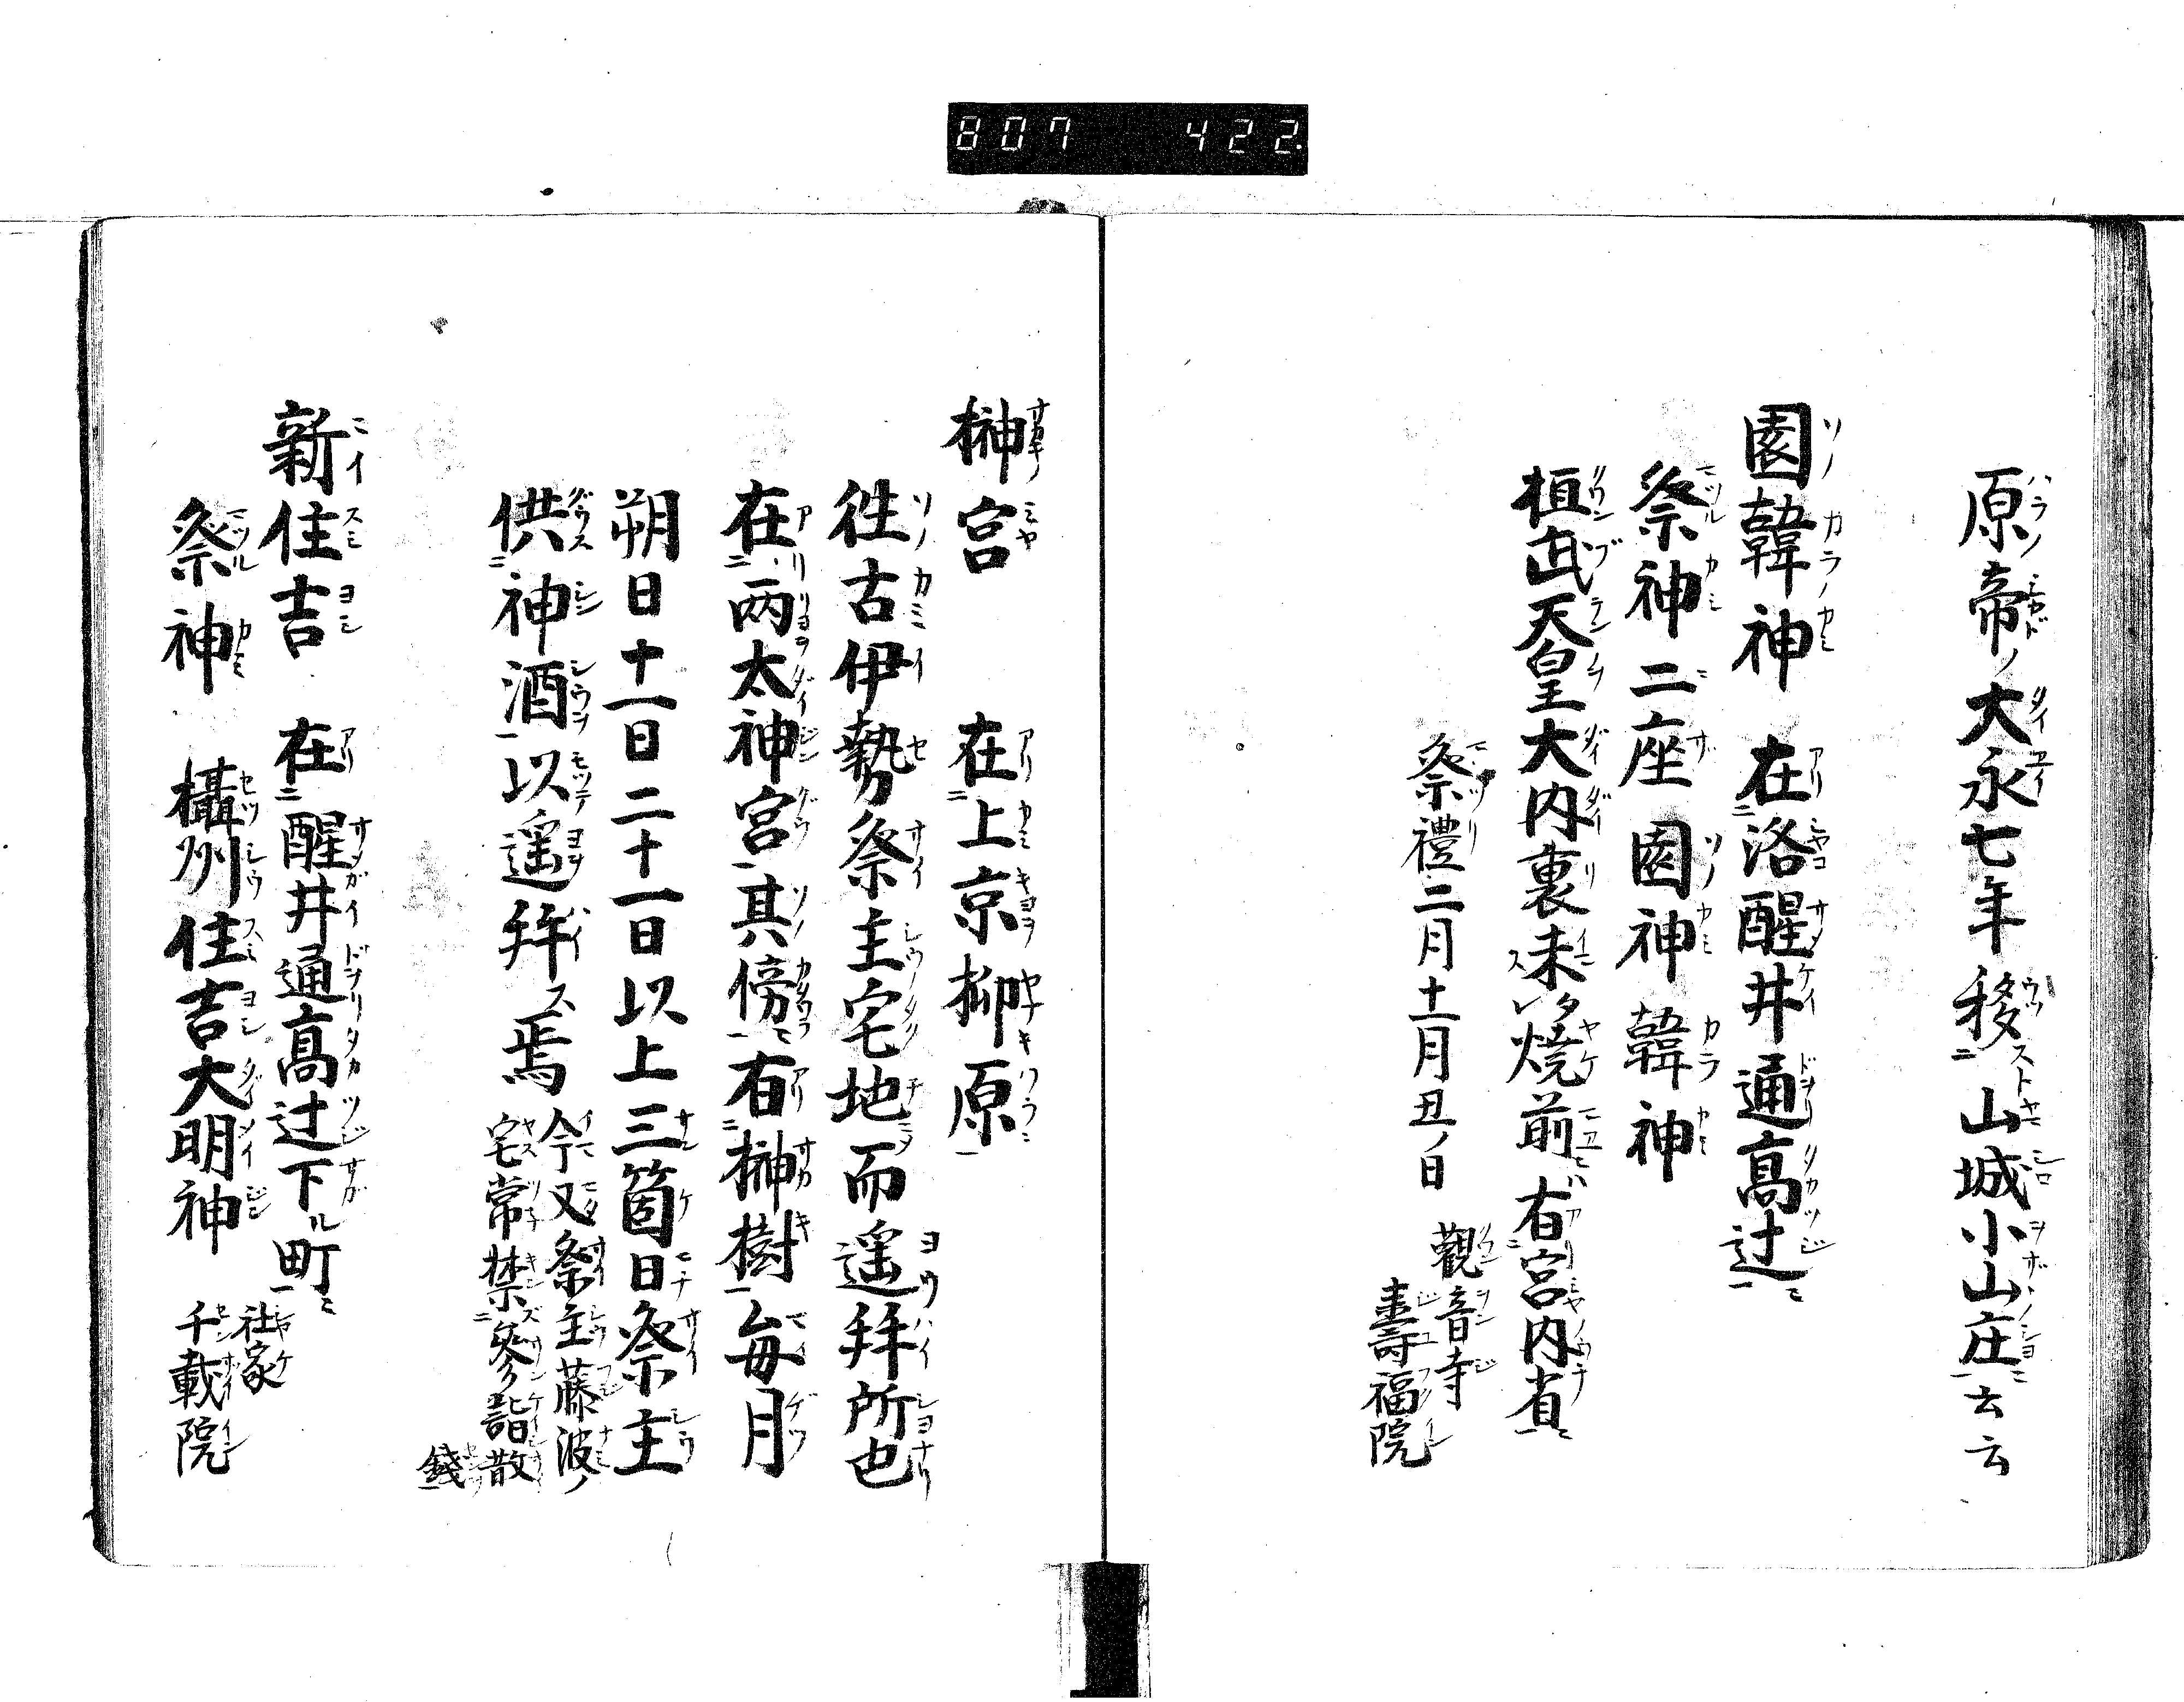 807 422
原帝ノ大永七年移山城小山庄云云
園韓神 在洛醒井通髙辻
祭神二座 園神 韓神
桓武天皇大内裏未焼前有宮内省
祭禮二月十一月丑ノ日 觀音寺
壽福院
榊宮 在上京柳原
徃古伊勢祭主宅地而遥拝所也
在两太神宮其傍有榊樹毎月
朔日十一日二十一日以上三箇日祭主
供神酒以遥拝ス焉 今又祭主藤波ノ
宅常禁參詣散
錢
新住吉 在醒井通髙辻下ル町 社家
祭神 攝州住吉大明神 千載院